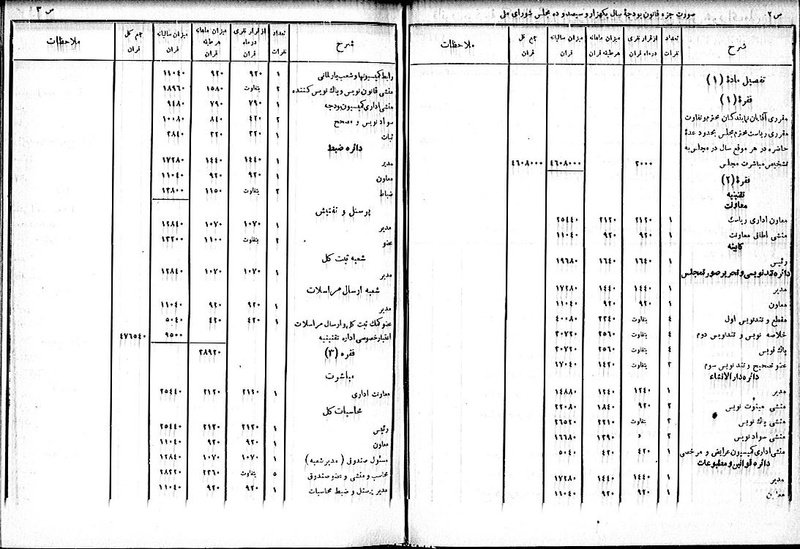 ص ۲ صورت جزء قانون بودجهٔ سال یکهزار و سیصد و ده مجلس شورای ملی
شرح تعداد نفرات از قرار نفری در ماه قران میزان ماهانه هر طبقه قران میزان سالیانه قران جمع کل قران ملاحظات
تفصیل مادهٔ (۱)
فقرهٔ (۱)
مقرری آقایان نمایندگان محترم و تفاوت
مقرری ریاست محترم مجلس بحدود عدهٔ
حاضره در هر موقع سال در مجلس به
تشخیص مباشرت مجلس ۲۰۰۰ ۴۶۰۸۰۰۰ ۴۶۰۸۰۰۰
فقرهٔ (۲)
تقنینیه
معاونت
معاون اداری ریاست ۱ ۲۱۲۰ ۲۱۲۰ ۲۵۴۴۰
منشی اطاق معاونت ۱ ۹۲۰ ۹۲۰ ۱۱۰۴۰
کابینه
رئیس ۱ ۱۶۴۰ ۱۶۴۰ ۱۹۶۸۰
دائره تندنویسی و تحریر صورت مجلس
مدیر ۱ ۱۴۴۰ ۱۴۴۰ ۱۷۲۸۰
معاون ۱ ۹۲۰ ۹۲۰ ۱۱۰۴۰
مقطع و تندنویس اول ۴ بتفاوت ۳۳۴۰ ۴۰۰۸۰
خلاصه نویس و تندنویس دوم ۴ بتفاوت ۲۵۶۰ ۳۰۷۲۰
پاک نویس ۴ بتفاوت ۲۵۶۰ ۳۰۷۲۰
عضو تصحیح و تندنویس سوم ۲ بتفاوت ۱۴۲۰ ۱۷۰۴۰
دائره دارالانشاء
مدیر ۱ ۱۲۴۰ ۱۲۴۰ ۱۴۸۸۰
منشی مینوت نویس ۲ ۹۲۰ ۱۸۴۰ ۲۲۰۸۰
منشی پاک نویس ۳ بتفاوت ۲۲۱۰ ۲۶۵۲۰
منشی سواد نویس ۲ ۱۳۹۰ ۱۶۶۸۰
منشی اداری کمیسیون عرایض و مرخصی ۱ ۴۲۰ ۴۲۰ ۵۰۴۰
دائره قوانین و مطبوعات
مدیر ۱ ۱۴۴۰ ۱۴۴۰ ۱۷۲۸۰
معاون ۱ ۹۲۰ ۹۲۰ ۱۱۰۴۰
ص ۳
شرح تعداد نفرات از قرار نفری در ماه قران میزان ماهانه هر طبقه قران میزان سالیانه قران جمع کل قران ملاحظات
رابط کمیسیونها و شعب پارلمانی ۱ ۹۲۰ ۹۲۰ ۱۱۰۴۰
منشی قانون نویس و پاک نویس کننده ۲ بتفاوت ۱۵۸۰ ۱۸۹۶۰
منشی اداری کمیسیون بودجه ۱ ۷۹۰ ۷۹۰ ۹۴۸۰
سواد نویس و مصحح ۲ ۴۲۰ ۸۴۰ ۱۰۰۸۰
ثبات ۱ ۳۲۰ ۳۲۰ ۳۸۴۰
دائره ضبط
مدیر ۱ ۱۴۴۰ ۱۴۴۰ ۱۷۲۸۰
معاون ۱ ۹۲۰ ۹۲۰ ۱۱۰۴۰
ضباط ۲ بتفاوت ۱۱۵۰ ۱۳۸۰۰
پرسنل و تفتیش
مدیر ۱ ۱۰۷۰ ۱۰۷۰ ۱۲۸۴۰
عضو ۲ بتفاوت ۱۱۰۰ ۱۳۲۰۰
شعبه ثبت کل
مدیر ۱ ۱۰۷۰ ۱۰۷۰ ۱۲۸۴۰
شعبه ارسال مراسلات
مدیر ۱ ۹۲۰ ۹۲۰ ۱۱۰۴۰
عضو کمک ثبت کل و ارسال مراسلات ۱ ۴۲۰ ۴۲۰ ۵۰۴۰
اعتبار خصوصی اداره تقنینیه ۹۵۰۰ ۴۷۶۵۴۰
فقره (۳) ۳۸۹۲۰
مباشرت
معاونت اداری ۱ ۲۱۲۰ ۲۱۲۰ ۲۵۴۴۰
محاسبات کل
رئیس ۱ ۲۱۲۰ ۲۱۲۰ ۲۵۴۴۰
معاون ۱ ۹۲۰ ۹۲۰ ۱۱۰۴۰
مسئول صندوق (مدیر شعبه) ۱ ۱۰۷۰ ۱۰۷۰ ۱۲۸۴۰
محاسب و منشی و عضو صندوق ۵ بتفاوت ۲۳۶۰ ۲۸۳۲۰
مدیر پرسنل و ضبط محاسبات ۱ ۹۲۰ ۹۲۰ ۱۱۰۴۰